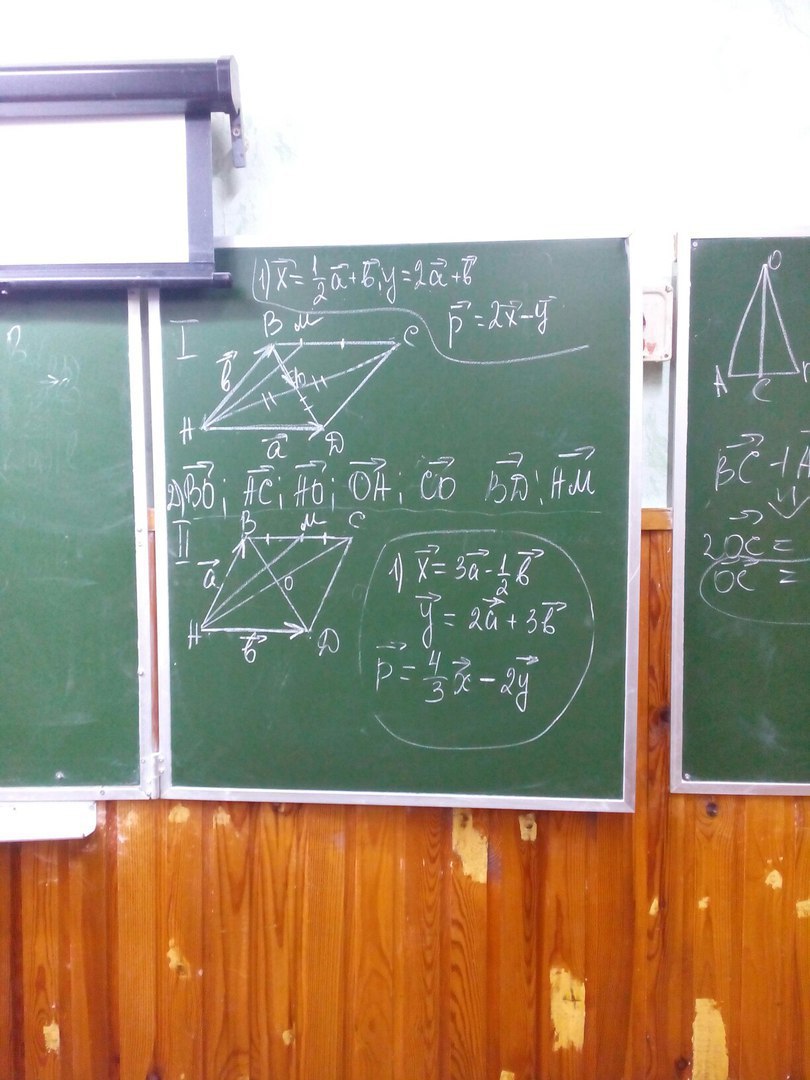 1) x⃗ = 1/2 a⃗ + b⃗, y = 2a⃗ + b⃗
p⃗ = 2x⃗ − y⃗
I
B M C
b⃗
O
H a⃗ D
2) BO⃗; AC⃗; AO⃗; OA⃗; CO⃗ BD⃗; AM⃗
II
B M C
a⃗
O
H b⃗ D
1) x⃗ = 3a⃗ − 1/2 b⃗
y⃗ = 2a⃗ + 3b⃗
p⃗ = 4/3 x⃗ − 2y⃗
O
A C
BC⃗ + A
2OC⃗ =
OC⃗ =